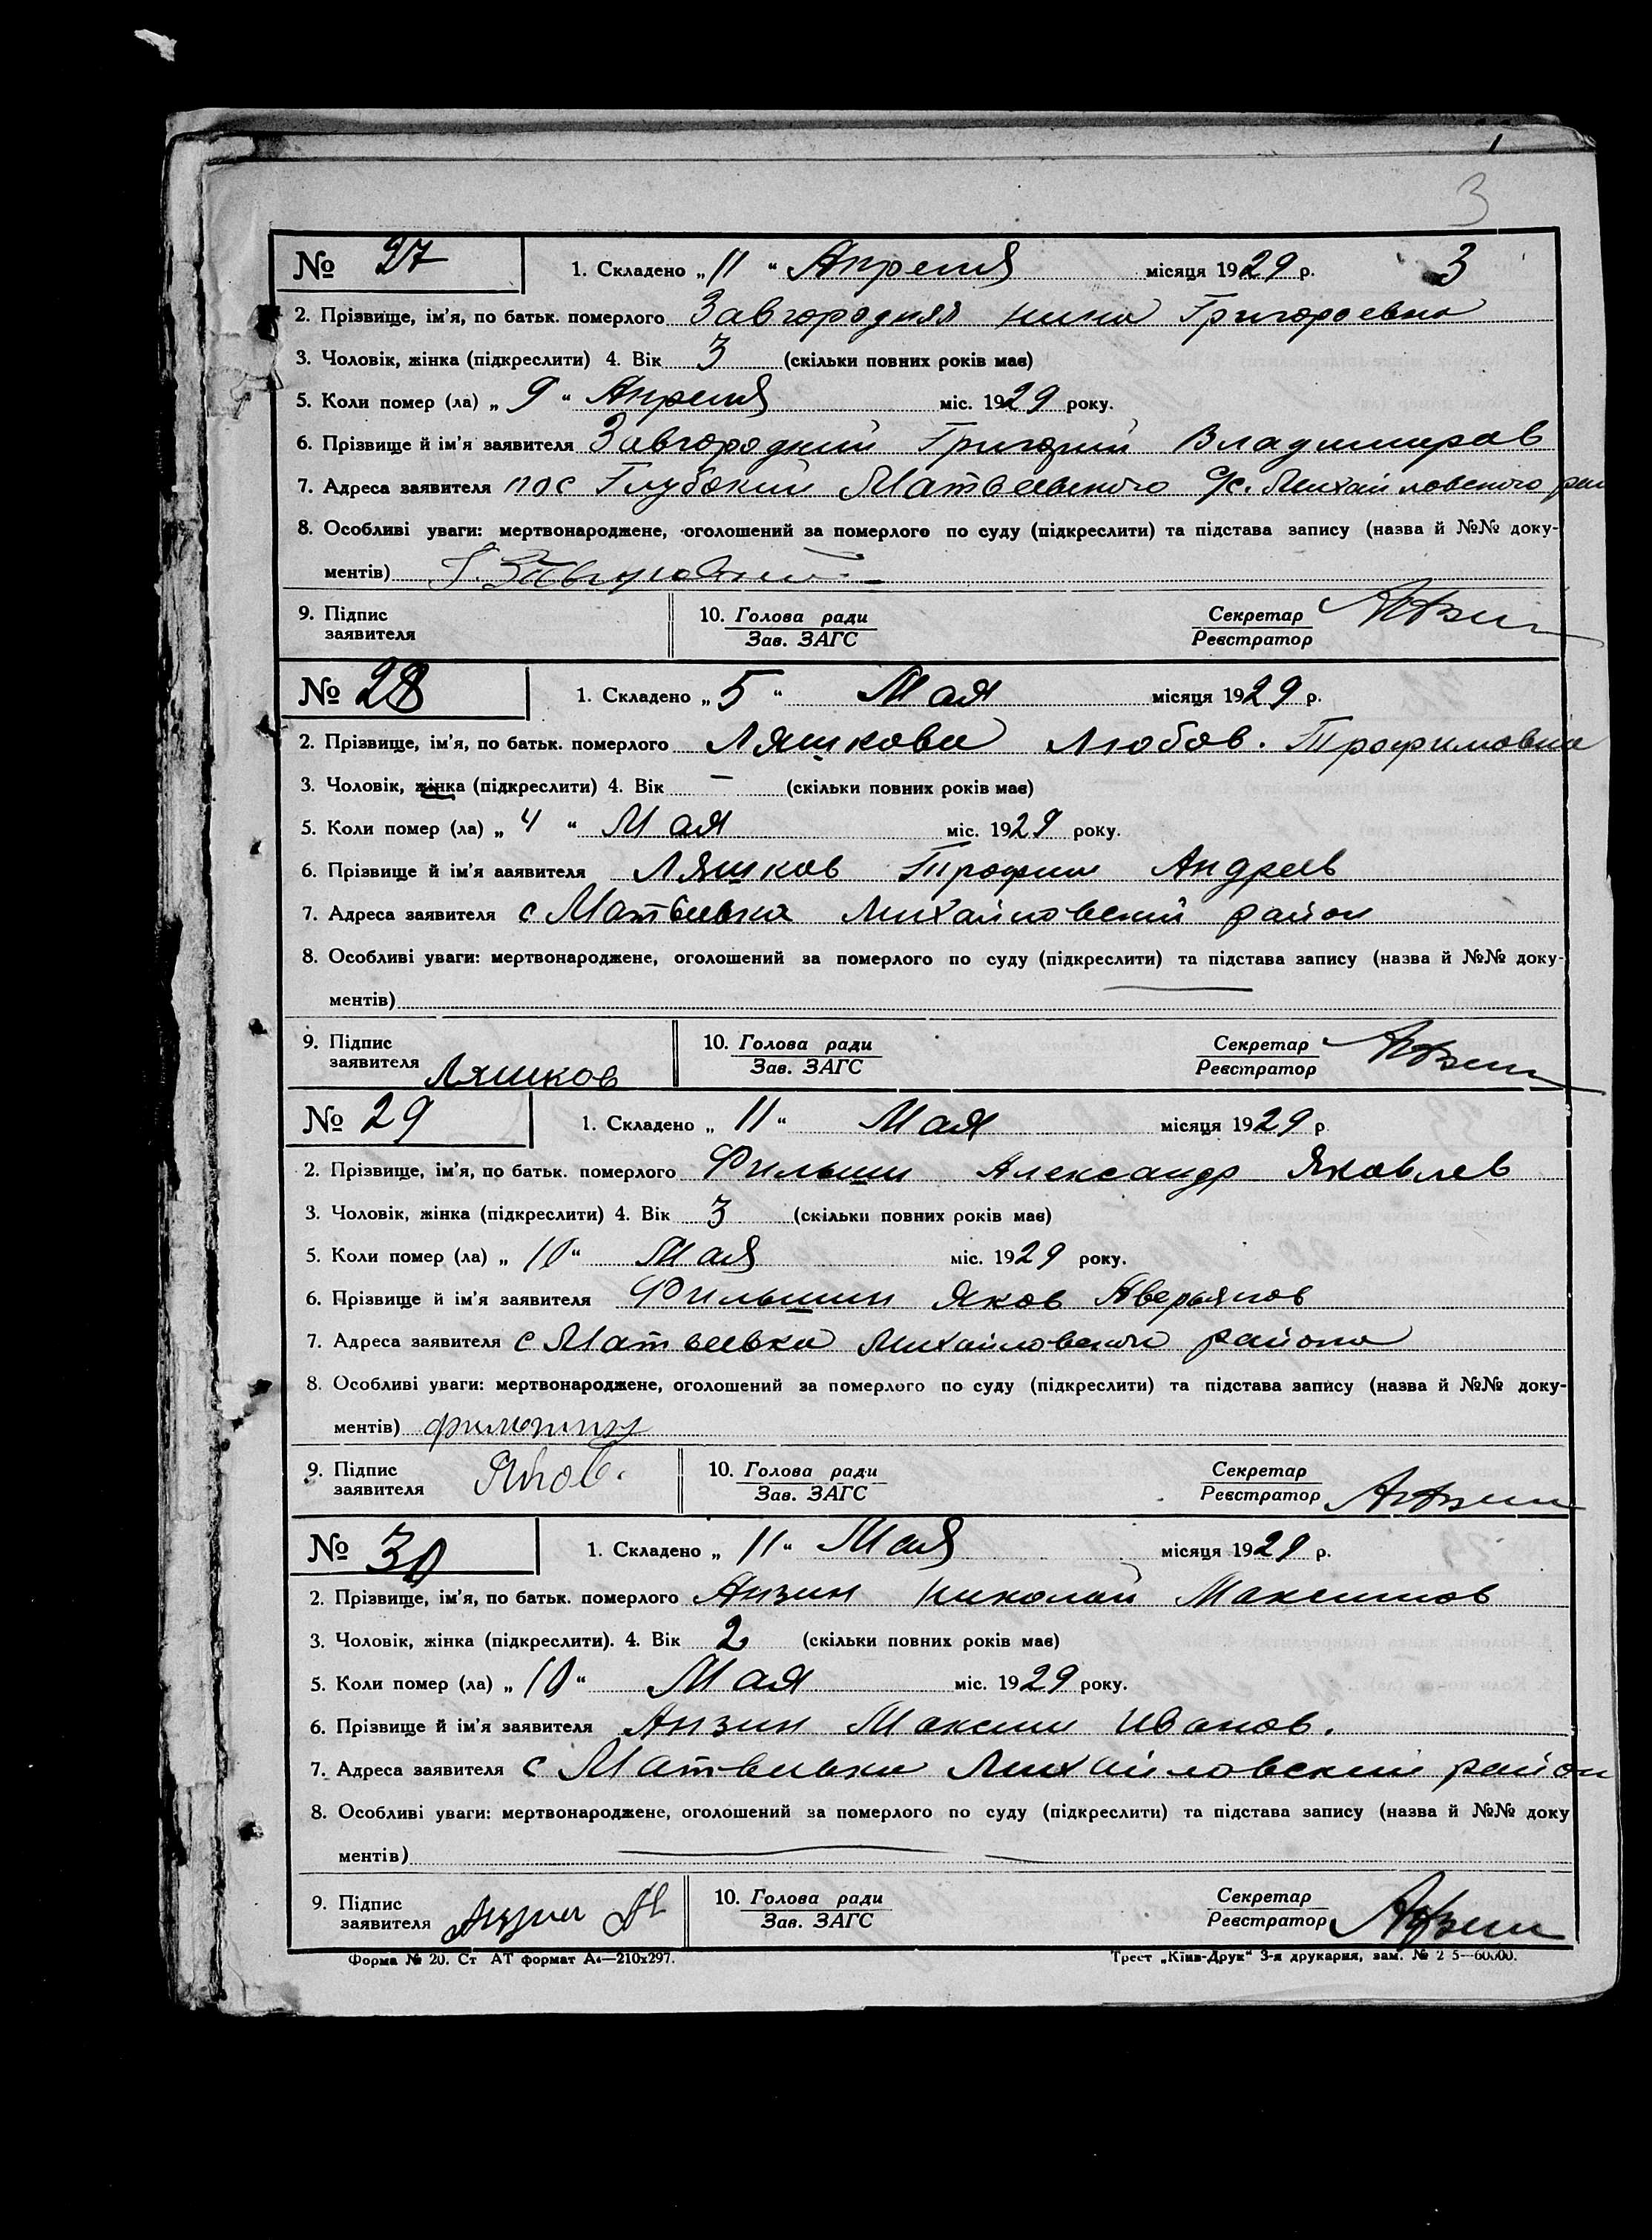 3
№ 27 1. Складено „11“ Апреля місяця 1929 р. 3
2. Прізвище, ім'я, по батьк. померлого Завгородняя Нина Григороевна
3. Чоловік, жінка (підкреслити) 4. Вік 3 (скільки повних років має)
5. Коли помер (ла) „9“ Апреля міс. 1929 року.
6. Прізвище й ім'я заявителя Завгородний Григорий Владимиров
7. Адреса заявителя пос Глубокий Матвеевского С/с. Михайловского рай
8. Особливі уваги: мертвонароджене, оголошений за померлого по суду (підкреслити) та підстава запису (назва й №№ доку-
ментів)
9. Підпис заявителя 10. Голова ради Зав. ЗАГС Секретар Реєстратор
№ 28 1. Складено „5“ Мая місяця 1929 р.
2. Прізвище, ім'я, по батьк. померлого Ляшкова Любов. Трофимовна
3. Чоловік, жінка (підкреслити) 4. Вік — (скільки повних років має)
5. Коли помер (ла) „4“ Мая міс. 1929 року.
6. Прізвище й ім'я заявителя Ляшков Трофим Андреев
7. Адреса заявителя с Матвеевка Михайловский район
8. Особливі уваги: мертвонароджене, оголошений за померлого по суду (підкреслити) та підстава запису (назва й №№ доку-
ментів)
9. Підпис заявителя Ляшков 10. Голова ради Зав. ЗАГС Секретар Реєстратор
№ 29 1. Складено „11“ Мая місяця 1929 р
2. Прізвище, ім'я, по батьк. померлого Фильшин Александр Яковлев
3. Чоловік, жінка (підкреслити) 4. Вік 3 (скільки повних років має)
5. Коли помер (ла) „10“ Мая міс. 1929 року.
6. Прізвище й ім'я заявителя Фильшин Яков Аверьянов
7. Адреса заявителя с Матвеевка Михайловского района
8. Особливі уваги: мертвонароджене, оголошений за померлого по суду (підкреслити) та підстава запису (назва й №№ доку-
ментів) фильшин
9. Підпис заявителя Яков. 10. Голова ради Зав. ЗАГС Секретар Реєстратор
№ 30 1. Складено „11“ Мая місяця 1929 р.
2. Прізвище, ім'я, по батьк. померлого Анзин Николай Максимов
3. Чоловік, жінка (підкреслити). 4. Вік 2 (скільки повних років має)
5. Коли помер (ла) „10“ Мая міс. 1929 року.
6. Прізвище й ім'я заявителя Анзин Максим Иванов.
7. Адреса заявителя с Матвеевка Михайловский район
8. Особливі уваги: мертвонароджене, оголошений за померлого по суду (підкреслити) та підстава запису (назва й №№ доку
ментів)
9. Підпис заявителя 10. Голова ради Зав. ЗАГС Секретар Реєстратор
Форма № 20. Ст АТ формат А₄—210х297. Трест „Київ-Друк“ 3-я друкарня, зам. № 2 5—60000.